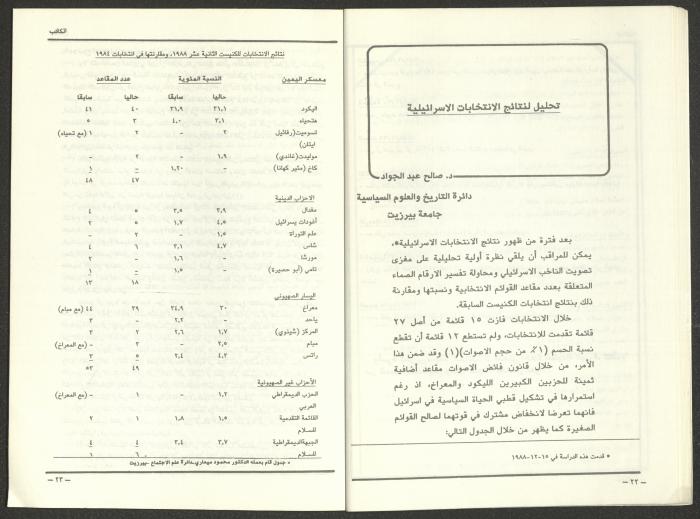 تحليل لنتائج الانتخابات الاسرائيلية
د. صالح عبد الجواد
دائرة التاريخ والعلوم السياسية
جامعة بيرزيت
بعد فترة من ظهور نتائج الانتخابات الاسرائيلية*،
يمكن للمراقب أن يلقي نظرة أولية تحليلية على مغزى
تصويت الناخب الاسرائيلي ومحاولة تفسير الارقام الصماء
المتعلقة بعدد مقاعد القوائم الانتخابية ونسبتها ومقارنة
ذلك بنتائج انتخابات الكنيست السابقة.
خلال الانتخابات فازت ١٥ قائمة من أصل ٢٧
قائمة تقدمت للإنتخابات، ولم تستطع ١٢ قائمة أن تقطع
نسبة الحسم (١٪ من حجم الاصوات)(١) وقد ضمن هذا
الأمر، من خلال قانون فائض الاصوات مقاعد أضافية
ثمينة للحزبين الكبيرين الليكود والمعراخ، اذ رغم
استمرارها في تشكيل قطبي الحياة السياسية في اسرائيل
فانهما تعرضا لانخفاض مشترك في قوتهما لصالح القوائم
الصغيرة كما يظهر من خلال الجدول التالي:
* قدمت هذه الدراسة في ١٥-١٢-١٩٨٨
— ٢٢ —
الكاتب
نتائج الانتخابات للكنيست الثانية عشر ١٩٨٨، ومقارنتها في انتخابات ١٩٨٤
معسكر اليمين النسبة المئوية عدد المقاعد
حاليا سابقا حاليا سابقا
اليكود ٣١,١ ٣١,٩ ٤٠ ٤١
هتحياه ٣,١ ٤,٠ ٣ ٥
تسوميت(رفائيل ٢ – ٢ ١ (مع تحياه)
ايتان)
موليدت(غاندي) ١,٩ – ٢ –
كاخ (مئير كهانا) – ١,٢٠ – ١
٤٧ ٤٨
الاحزاب الدينية
مفدال ٣,٩ ٣,٥ ٥ ٤
أغودات يسرائيل ٤,٥ ١,٧ ٥ ٢
علم التوراة ١,٥ – ٢ –
شاس ٤,٧ ٣,١ ٦ ٤
موراشا – ١,٦ – ٢
تامي (أبو حصيرة) – ١,٥ – ١
١٨ ١٣
اليسار الصهيوني
معراخ ٣٠ ٣٤,٩ ٣٩ ٤٤ (مع مبام)
ياحد – ٢,٢ – ٣
المركز (شينوي) ١,٧ ٢,٦ ٢ ٣
مبام ٢,٥ – ٣ – (مع المعراخ)
راتس ٤,٣ ٢,٤ ٥ ٣
٤٩ ٥٣
الأحزاب غير الصهيونية
الحزب الديمقراطي ١,٢ – ١ – (مع المعراخ)
العربي
القائمة التقدمية ١,٥ ١,٨ ١ ٢
للسلام
الجبهةالديمقراطية ٣,٧ ٣,٤ ٤ ٤
للسلام ٦ ١
* جدول قام بعمله الدكتور محمود ميعاري،دائرة علم الاجتماع -بيرزيت
— ٢٣ —